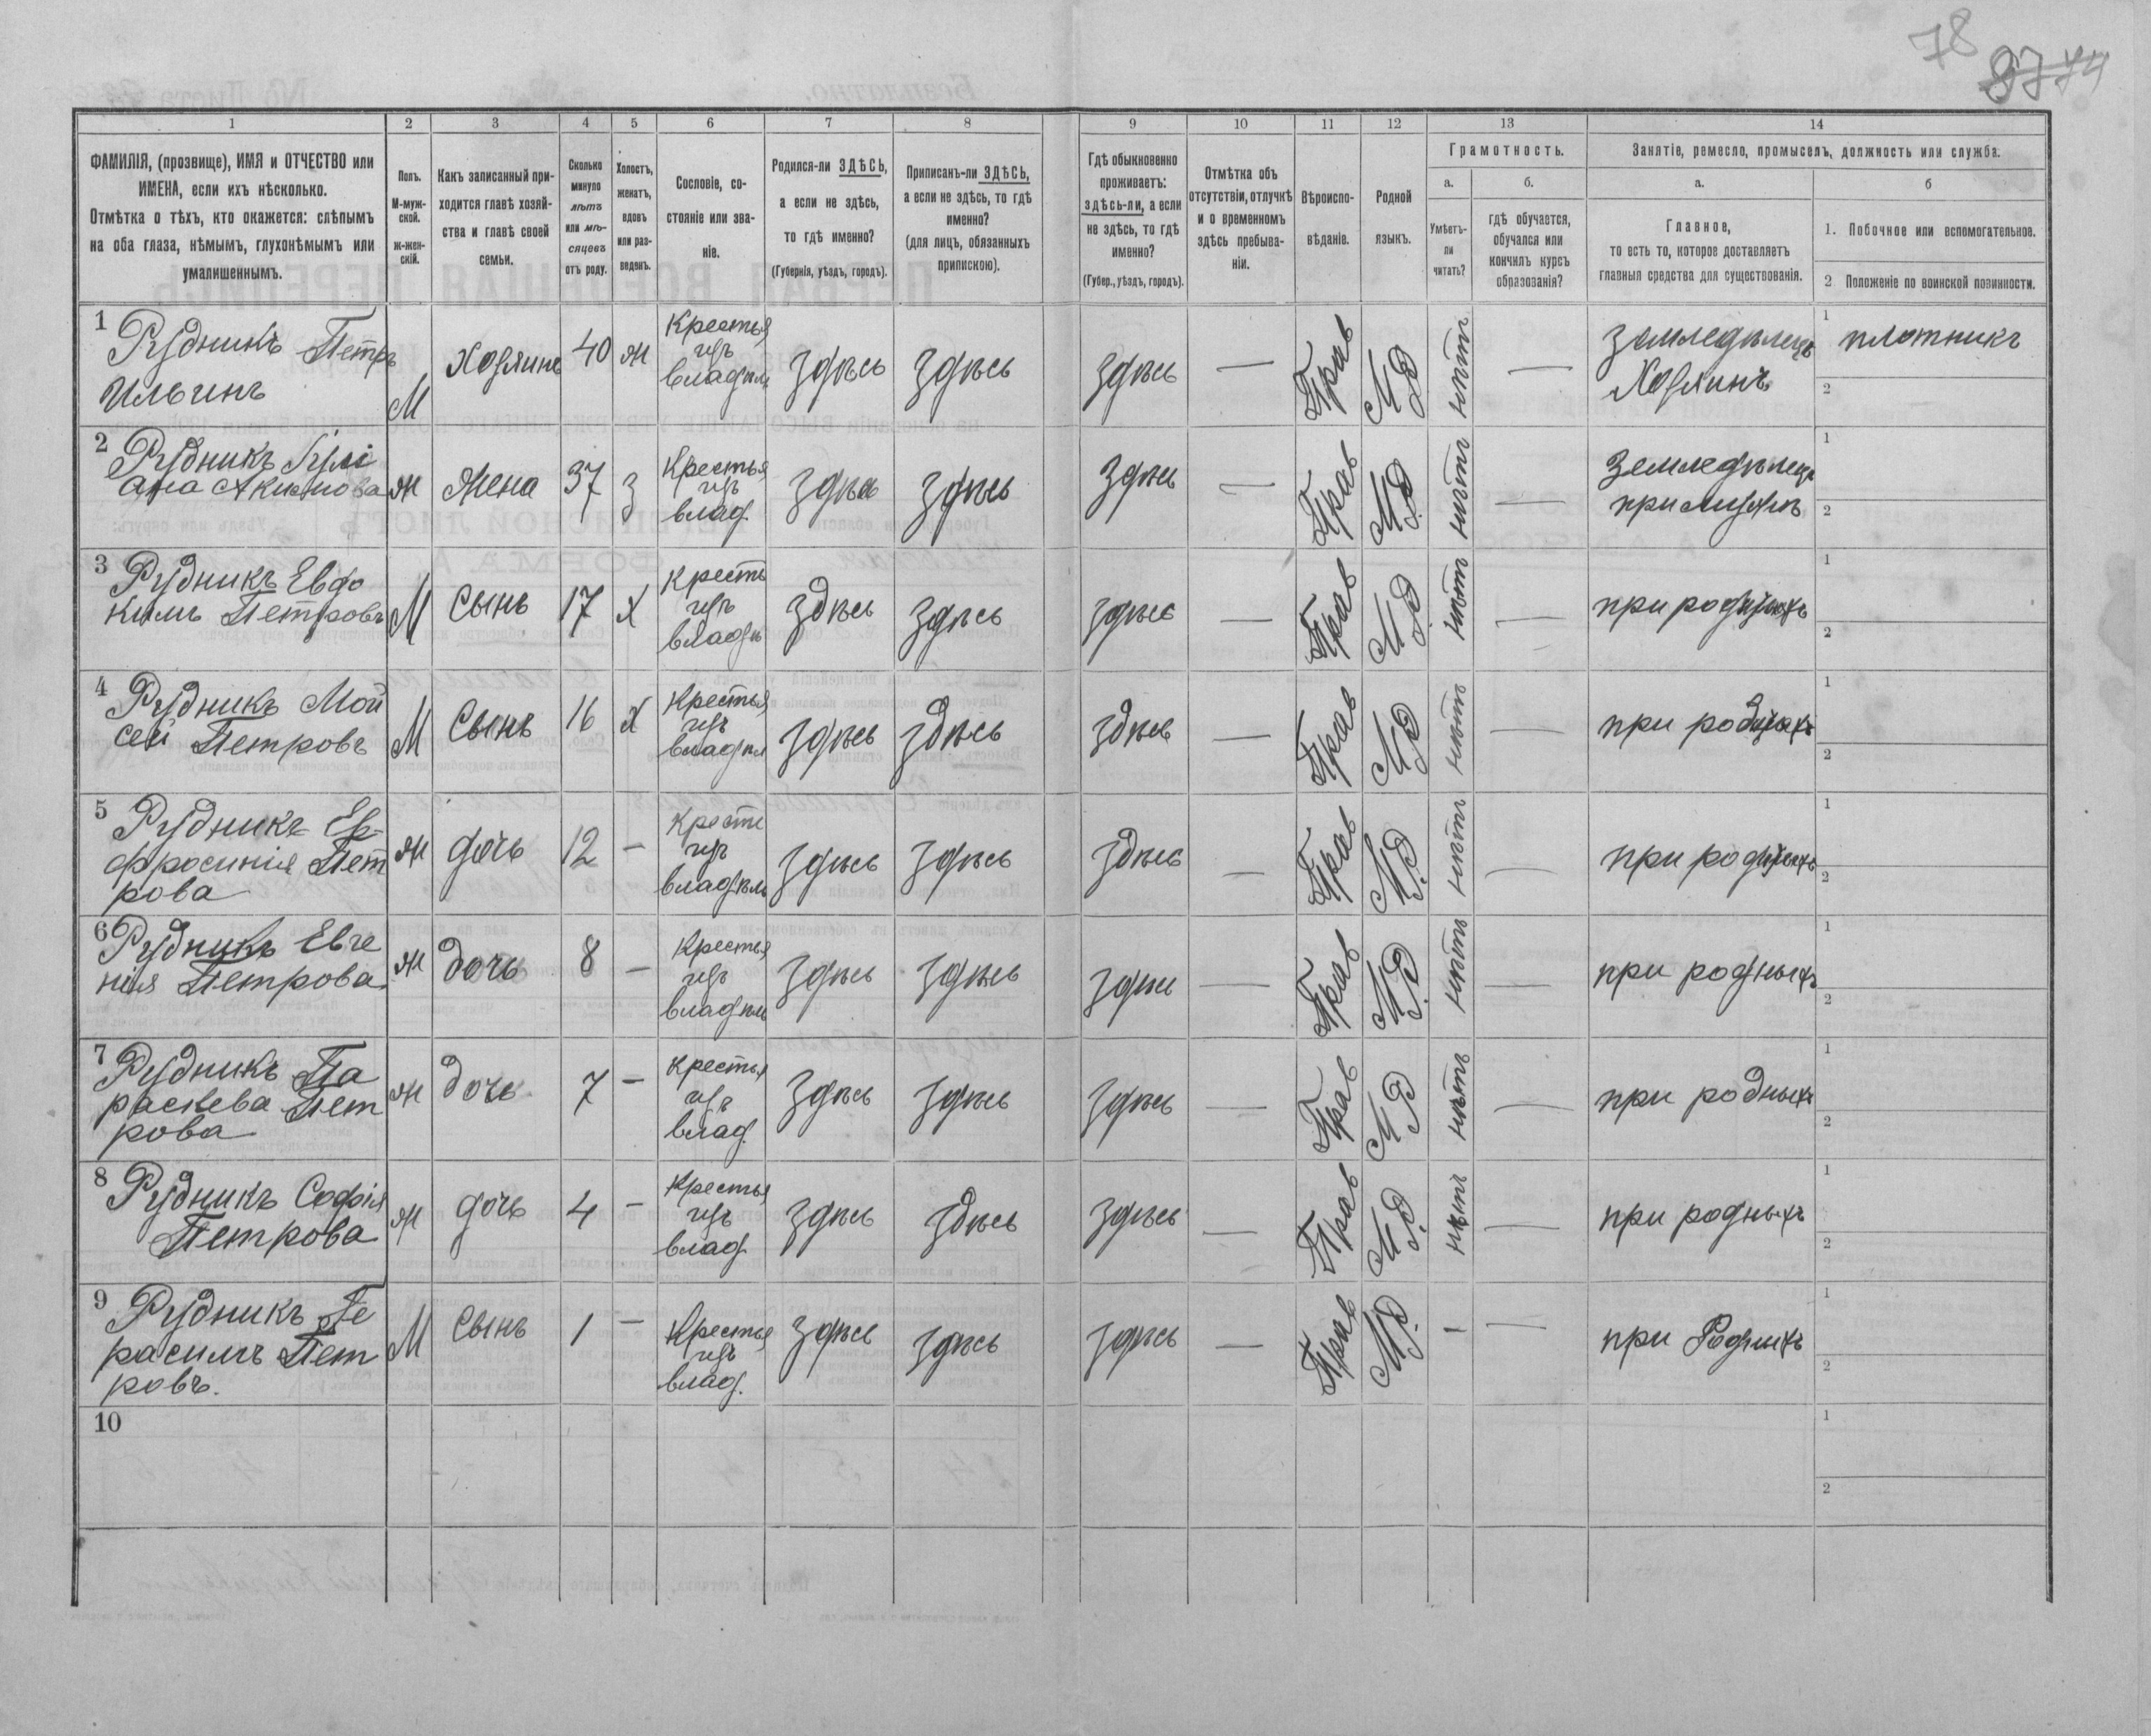 78
87 74
1 2 3 4 5 6 7 8 9 10 11 12 13 14
ФАМИЛІЯ, (прозвище), ИМЯ и ОТЧЕСТВО или
ИМЕНА, если ихъ нѣсколько.
Отмѣтка о тѣхъ, кто окажется: слѣпымъ
на оба глаза, нѣмымъ, глухонѣмымъ или
умалишеннымъ.
Полъ.
М-муж-
ской.
ж-жен-
скій.
Какъ записанный при-
ходится главѣ хозяй-
ства и главѣ своей
семьи.
Сколько
минуло
лѣтъ
или мѣ-
сяцевъ
отъ роду.
Холостъ,
женатъ,
вдовъ
или раз-
веденъ.
Сословіе, со-
стояніе или зва-
ніе.
Родился-ли ЗДѢСЬ,
а если не здѣсь,
то гдѣ именно?
(Губернія, уѣздъ, городъ).
Приписанъ-ли ЗДѢСЬ,
а если не здѣсь, то гдѣ
именно?
(для лицъ, обязанныхъ
припискою).
Гдѣ обыкновенно
проживаетъ:
здѣсь-ли, а если
не здѣсь, то гдѣ
именно?
(Губер., уѣздъ, городъ).
Отмѣтка объ
отсутствіи, отлучкѣ
и о временномъ
здѣсь пребыва-
ніи.
Вѣроиспо-
вѣданіе.
Родной
языкъ.
Грамотность.
а.
Умѣетъ-
ли
читать?
б.
гдѣ обучается,
обучался или
кончилъ курсъ
образованія?
Занятіе, ремесло, промыселъ, должность или служба.
а.
Главное,
то есть то, которое доставляетъ
главныя средства для существованія.
б
1. Побочное или вспомогательное.
2 Положеніе по воинской повинности.
1 Рудникъ Петръ
Ильинъ
М
Хозяинъ
40
ж
Крестья
изъ
владѣл
здѣсь
здѣсь
здѣсь
—
Прав
М.Р.
нѣтъ
—
земледѣлецъ
Хозяинъ
1 плотникъ
2
2 Рудникъ Іулі
ана Акимова
ж
Жена
37
З
Крестья
изъ
влад.
здѣсь
здѣсь
здѣсь
—
Прав
М.Р.
нѣтъ
—
земледѣлецъ
при мужѣ
1
2
3 Рудникъ Евдо
кимъ Петровъ
М
Сынъ
17
Х
Кресть
изъ
владѣ
здѣсь
здѣсь
здѣсь
—
Прав
М.Р.
нѣтъ
—
при родныхъ
1
2
4 Рудникъ Мой
сей Петровъ
М
Сынъ
16
Х
Крестья
изъ
владѣл
здѣсь
здѣсь
здѣсь
—
Прав
М.Р.
нѣтъ
—
при родныхъ
1
2
5 Рудникъ Еф-
фросинія Пет
рова
ж
дочь
12
—
Крести
изъ
владѣль
здѣсь
здѣсь
здѣсь
—
Прав
М.Р.
нѣтъ
—
при родныхъ
1
2
6 Рудникъ Евге
нія Петрова
ж
дочь
8
—
Крестья
изъ
владѣль
здѣсь
здѣсь
здѣсь
—
Прав
М.Р.
нѣтъ
—
при родныхъ
1
2
7 Рудникъ Па
раскева Пет
рова
ж
дочь
7
—
Крестья
изъ
влад.
здѣсь
здѣсь
здѣсь
—
Прав
М.Р.
нѣтъ
—
при родныхъ
1
2
8 Рудникъ Софія
Петрова
ж
дочь
4
—
Крестья
изъ
влад.
здѣсь
здѣсь
здѣсь
—
Прав
М.Р.
нѣтъ
—
при родныхъ
1
2
9 Рудникъ Ге
расимъ Пет
ровъ.
М
Сынъ
1
—
Крестья
изъ
влад.
здѣсь
здѣсь
здѣсь
—
Прав
М.Р.
—
—
при Родныхъ
1
2
10
1
2